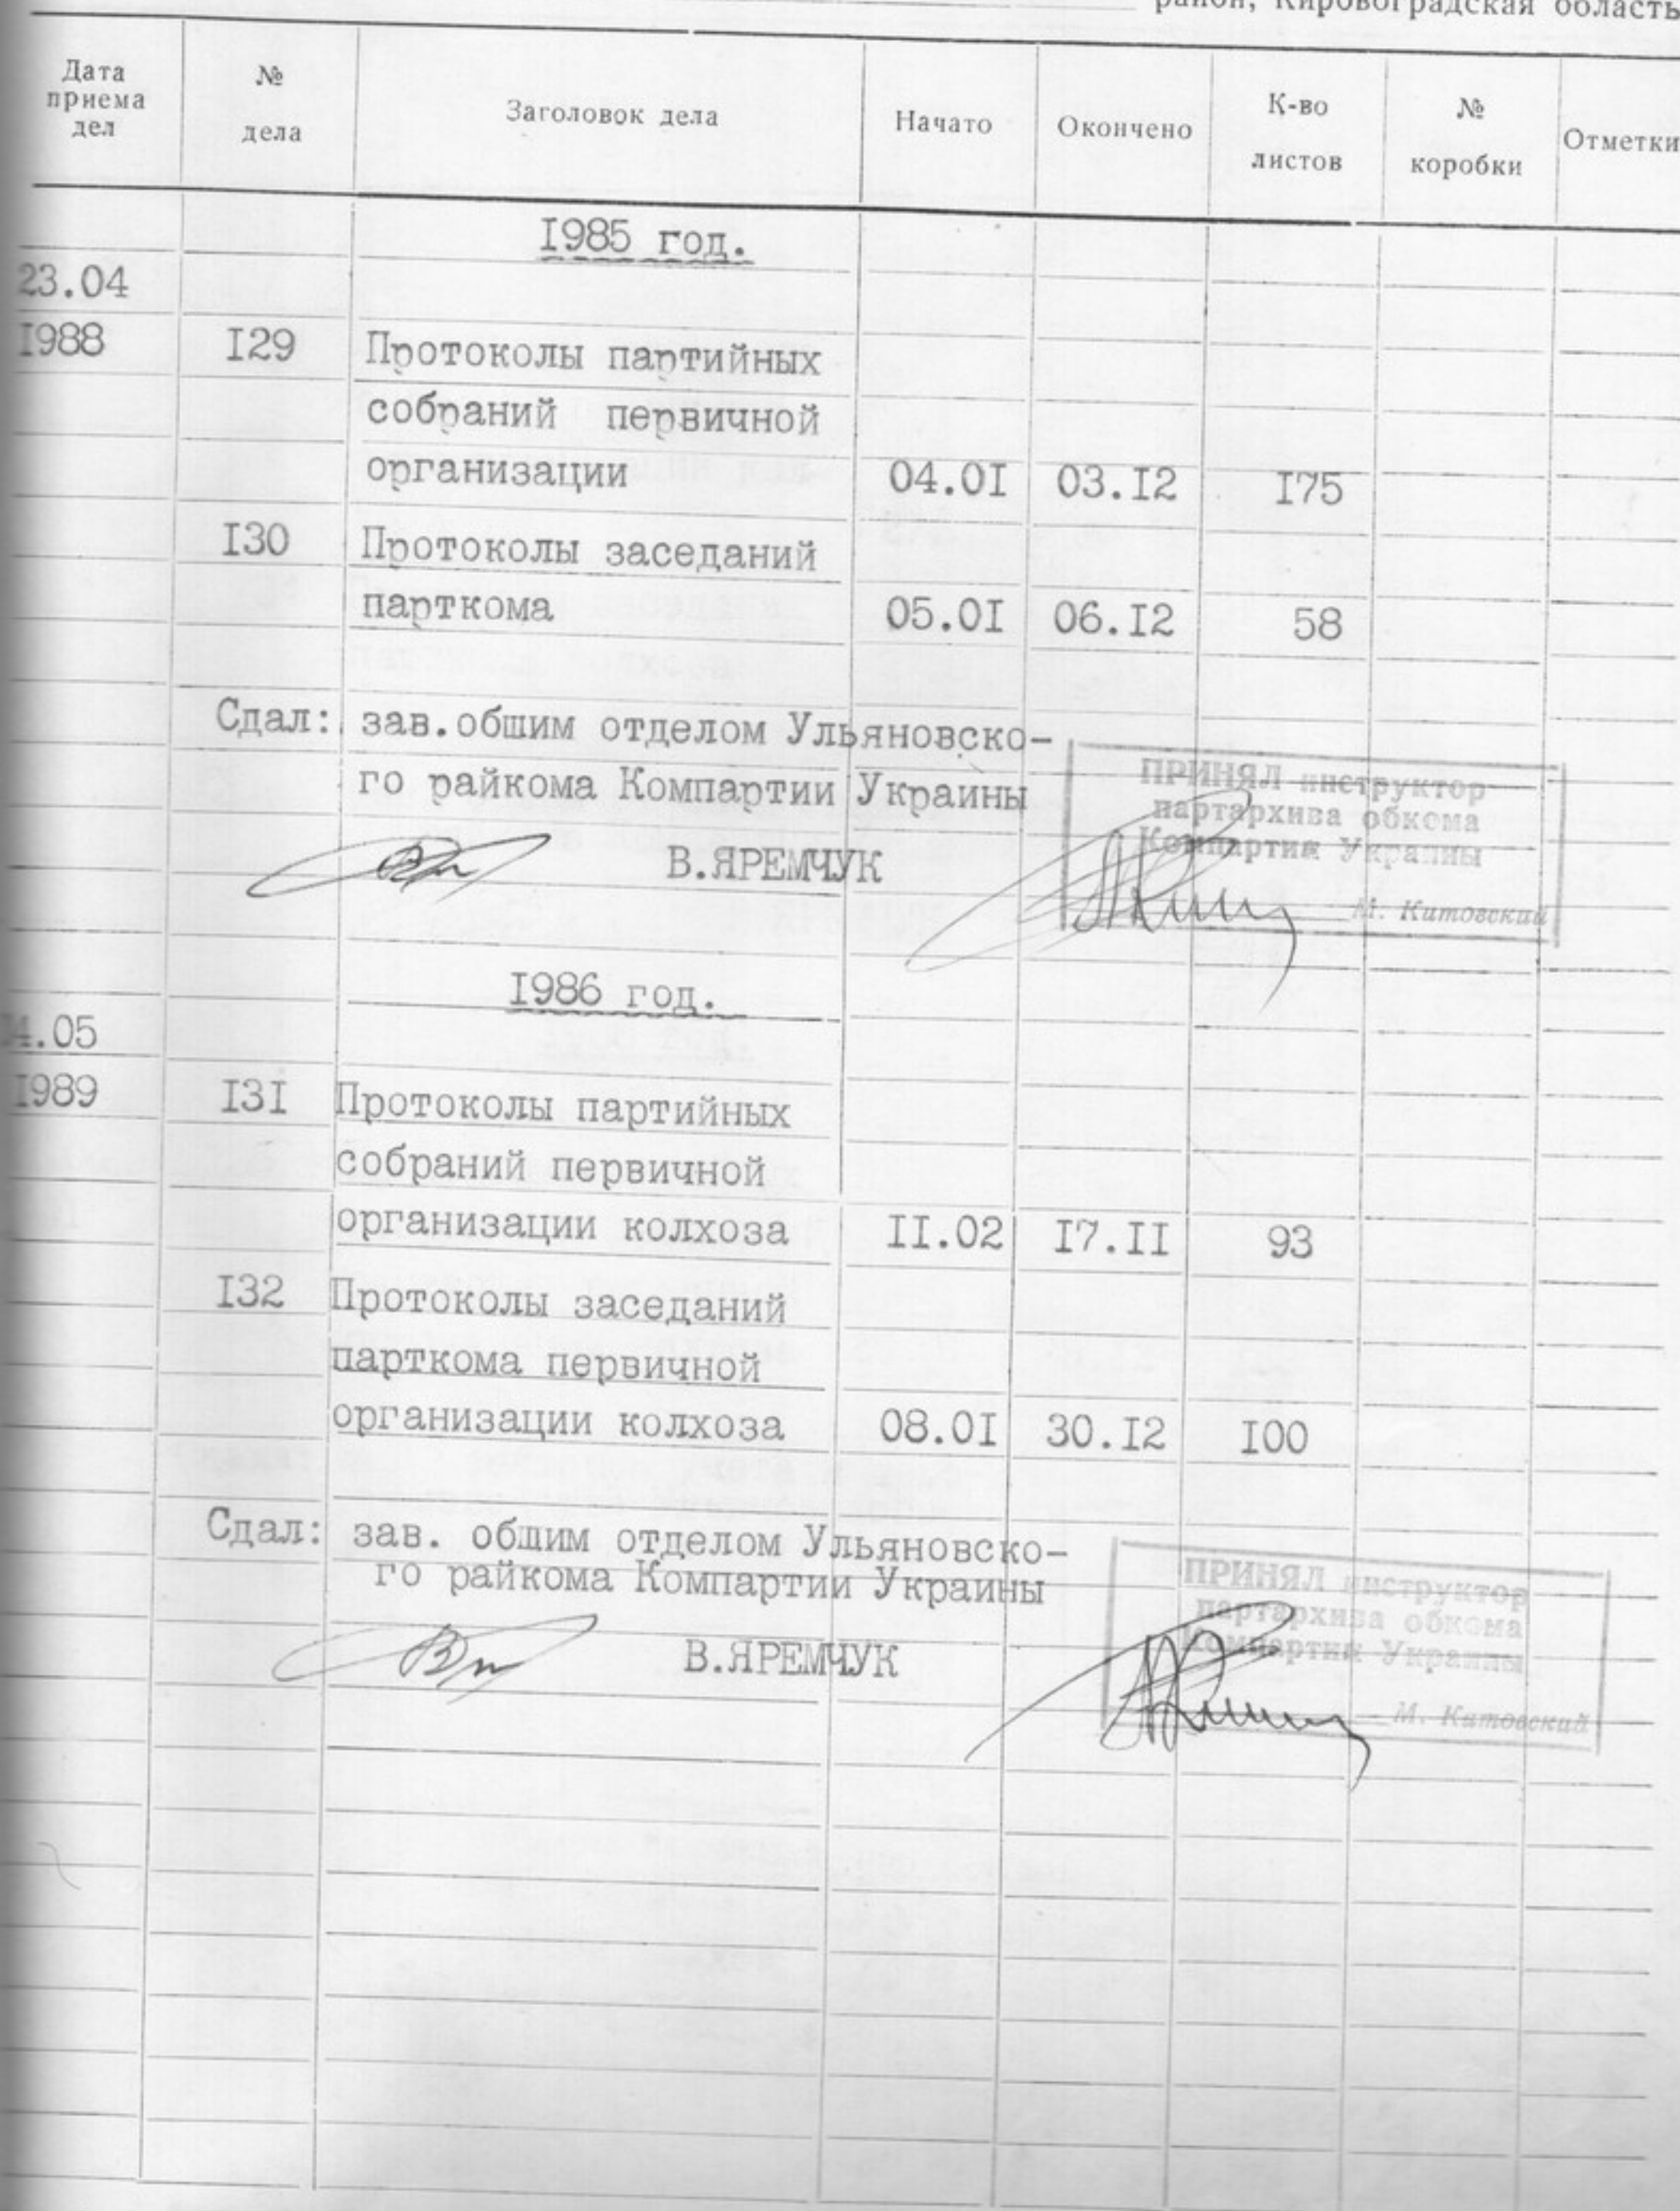 район, Кировоградская область
Дата приема дел № дела Заголовок дела Начато Окончено К-во листов № коробки Отметки
I985 год.
23.04
I988 I29 Протоколы партийных
собраний первичной
организации 04.0I 03.I2 I75
I30 Протоколы заседаний
парткома 05.0I 06.I2 58
Сдал: зав.обшим отделом Ульяновско-
го райкома Компартии Украины
В.ЯРЕМЧУК
ПРИНЯЛ инструктор
партархива обкома
Компартии Украины
М. Китовский
I986 год.
4.05
I989 I3I Протоколы партийных
собраний первичной
организации колхоза II.02 I7.II 93
I32 Протоколы заседаний
парткома первичной
организации колхоза 08.0I 30.I2 I00
Сдал: зав. обшим отделом Ульяновско-
го райкома Компартии Украины
В.ЯРЕМЧУК
ПРИНЯЛ инструктор
партархива обкома
Компартии Украины
М. Китовский